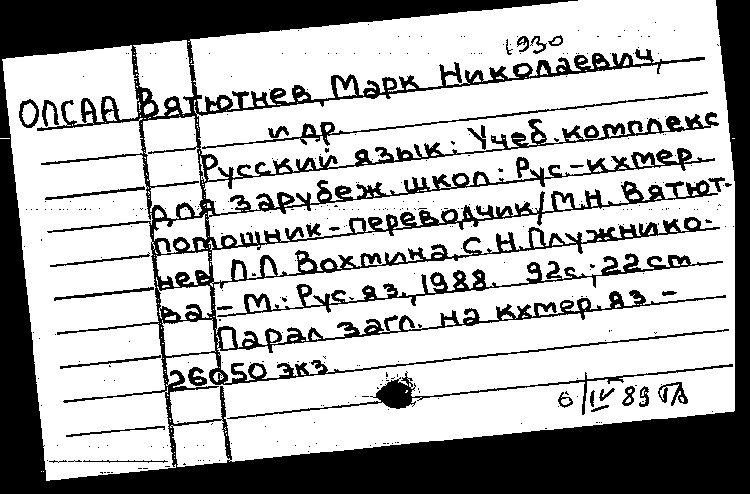 1930
ОЛСАА Вятютнев, Марк Николаевич,
и др.
Русский язык: Учеб. комплекс
для зарубеж. школ: Рус.-кхмер.
помощник-переводчик/М.Н. Вятют-
нев, Л.Л. Вохмина, С.Н. Плужнико-
ва.- М.: Рус. яз., 1988. 92с.; 22 см
Парал загл. на кхмер. яз. -
26050 экз.
6/IV 89